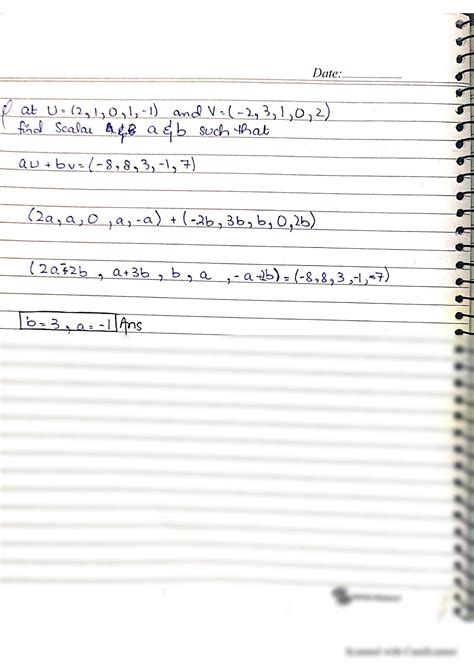 Date:
at U=(2,1,0,1,-1) and V=(-2,3,1,0,2)
find Scalar a & b such that
au+bv=(-8,8,3,-1,7)
(2a,a,0,a,-a)+(-2b,3b,b,0,2b)
(2a-2b, a+3b, b, a, -a+2b)=(-8,8,3,-1,-7)
b=3, a=-1 Ans
Scanned with CamScanner